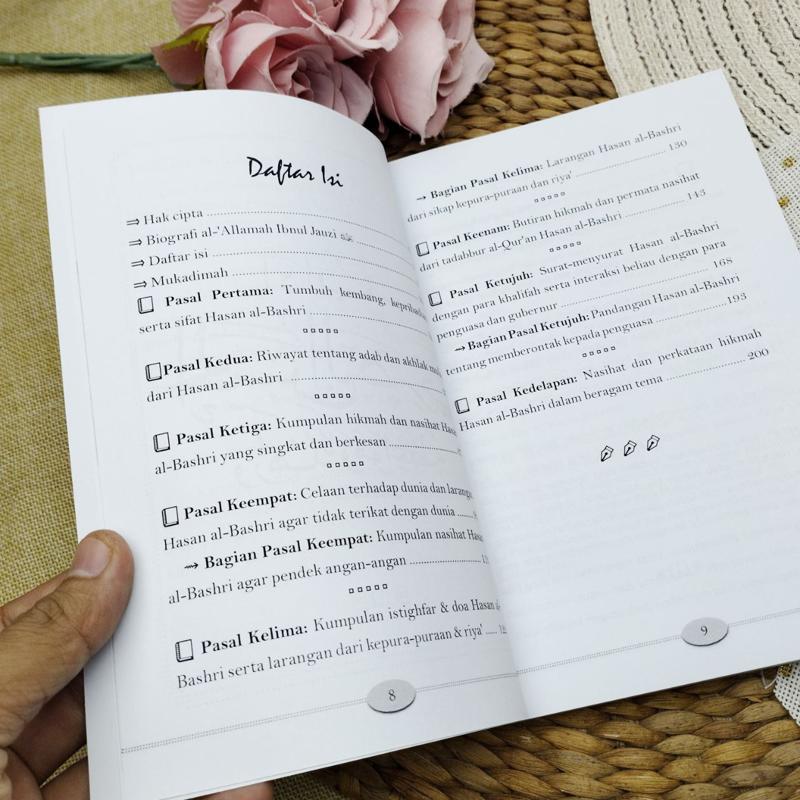 Daftar Isi
⇒ Hak cipta
⇒ Biografi al-'Allamah Ibnul Jauzi
⇒ Daftar isi
⇒ Mukadimah
Pasal Pertama: Tumbuh kembang,
serta sifat Hasan al-Bashri
Pasal Kedua: Riwayat tentang adab dan akhlak
dari Hasan al-Bashri
Pasal Ketiga: Kumpulan hikmah dan nasihat
al-Bashri yang singkat dan berkesan
Pasal Keempat: Celaan terhadap dunia dan
Hasan al-Bashri agar tidak terikat dengan dunia
Bagian Pasal Keempat: Kumpulan nasihat
al-Bashri agar pendek angan-angan
Pasal Kelima: Kumpulan istighfar & doa Hasan
Bashri serta larangan dari kepura-puraan & riya'
8
Bagian Pasal Kelima: Larangan Hasan al-Bashri
dari sikap kepura-puraan dan riya' 130
Pasal Keenam: Butiran hikmah dan permata nasihat
dari tadabbur al-Qur'an Hasan al-Bashri 143
Pasal Ketujuh: Surat-menyurat Hasan al-Bashri
dengan para khalifah serta interaksi beliau dengan para
penguasa dan gubernur 168
Bagian Pasal Ketujuh: Pandangan Hasan al-Bashri
tentang memberontak kepada penguasa 193
Pasal Kedelapan: Nasihat dan perkataan hikmah
Hasan al-Bashri dalam beragam tema 200
9